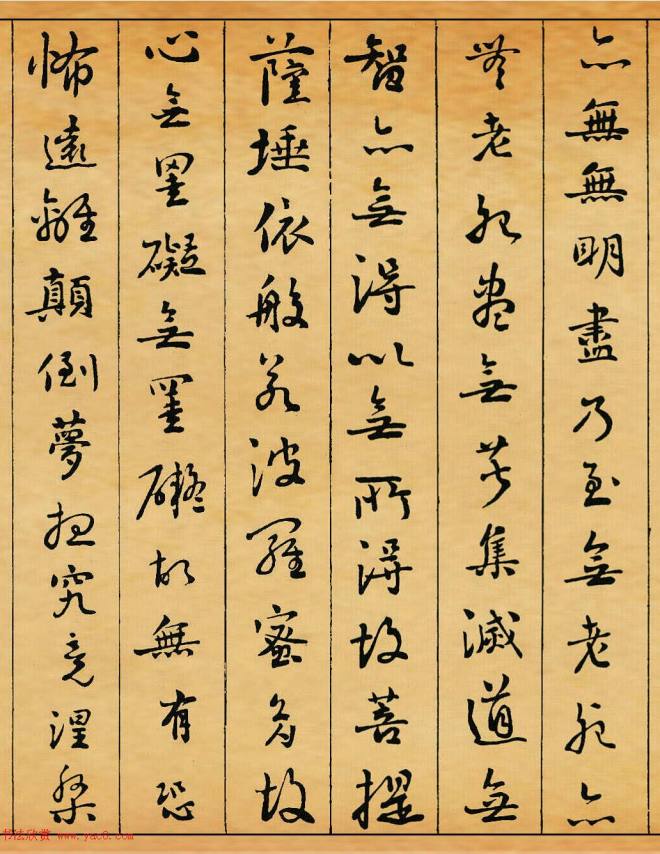 亦無無明盡乃至無老死亦
無老死盡無苦集滅道無
智亦無得以無所得故菩提
薩埵依般若波羅蜜多故
心無罣礙無罣礙故無有恐
怖遠離顛倒夢想究竟涅槃
书法欣赏 www.yac8.com